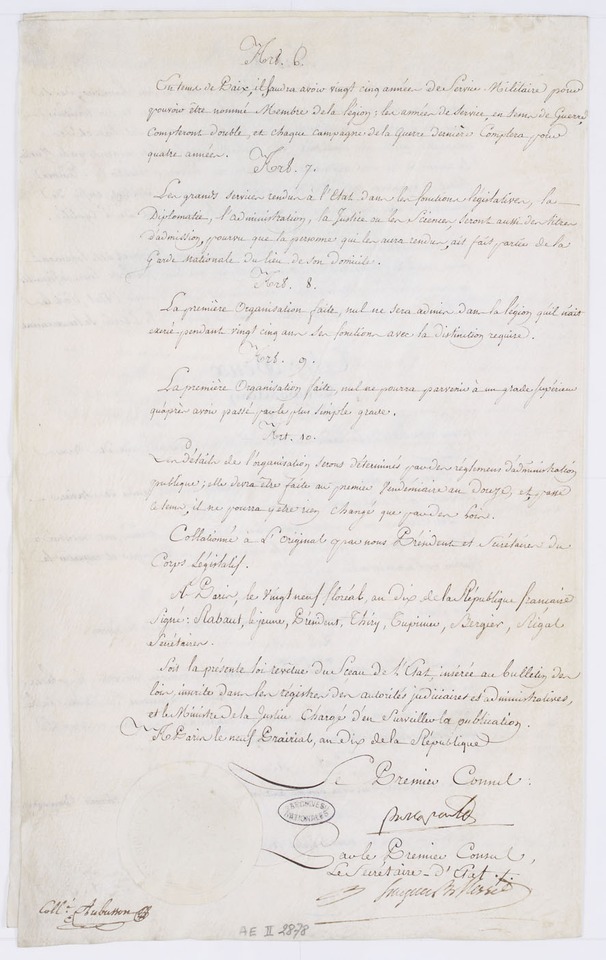 Art. 6.
En tems de Paix, il faudra avoir vingt cinq années de Service Militaire pour
pouvoir être nommé Membre de la légion; les années de service, en tems de Guerre,
Compteront double, et chaque campagne de la Guerre dernière Comptera pour
quatre années.
Art. 7.
Les grands services rendus à l'Etat dans les fonctions législatives, la
Diplomatie, l'administration, la Justice ou les Sciences, seront aussi des titres
d'admission, pourvu que la personne qui les aura rendus, ait fait partie de la
Garde Nationale du lieu de son domicile.
Art. 8.
La première Organisation faite, nul ne sera admis dans la légion qu'il n'ait
exercé pendant vingt cinq ans ses fonctions avec la distinction requise.
Art. 9.
La première Organisation faite, nul ne pourra parvenir à un grade supérieur
qu'après avoir passé par le plus simple grade.
Art. 10.
Les Détails de l'organisation seront déterminés par des réglemens d'administration
publique; elle devra être faite au premier Vendémiaire an douze; et, passé
ce tems, il ne pourra y être rien changé que par des loix.
Collationné à l'original par nous Président et Secrétaires du
Corps Législatif.
A Paris, le Vingt neuf floréal, an dix de la République française
Signé: Rabaut, le jeune, Président, Thiry, Tupinier, Bergier, Rigal
Secrétaires.
Soit la présente loi revêtue du Sceau de l'Etat, insérée au bulletin des
loix, inscrite dans les registres des autorités judiciaires et administratives,
et le Ministre de la Justice Chargé d'en Surveiller la publication.
A Paris le neuf Prairial, an dix de la République
Le Premier Consul:
Bonaparte
ARCHIVES
NATIONALES
Par le Premier Consul,
Le Secrétaire-d'Etat.
Hugues B. Maret
Coll.é Aubusson
AE II 2878